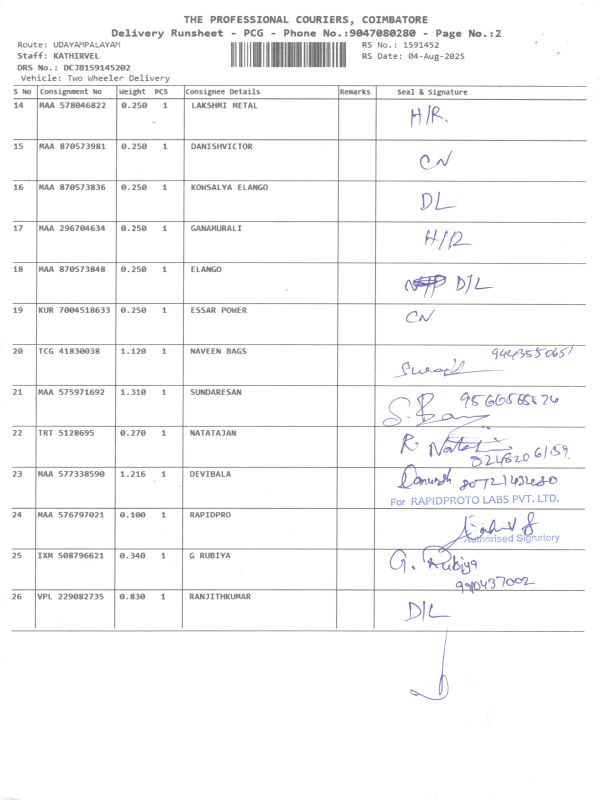 THE PROFESSIONAL COURIERS, COIMBATORE
Delivery Runsheet - PCG - Phone No.:9047080280 - Page No.:2
Route: UDAYAMPALAYAM RS No.: 1591452
Staff: KATHIRVEL RS Date: 04-Aug-2025
DRS No.: DCJB159145202
Vehicle: Two Wheeler Delivery
S No Consignment No Weight PCS Consignee Details Remarks Seal & Signature
14 MAA 578046822 0.250 1 LAKSHMI METAL H/R.
15 MAA 870573981 0.250 1 DANISHVICTOR CN
16 MAA 870573836 0.250 1 KOWSALYA ELANGO DL
17 MAA 296704634 0.250 1 GANAMURALI H/R
18 MAA 870573848 0.250 1 ELANGO D/L
19 KUR 7004518633 0.250 1 ESSAR POWER CN
20 TCG 41830038 1.120 1 NAVEEN BAGS 9443550651
21 MAA 575971692 1.310 1 SUNDARESAN
22 TRT 5128695 0.270 1 NATATAJAN R.
23 MAA 577338590 1.216 1 DEVIBALA
For RAPIDPROTO LABS PVT. LTD.
24 MAA 576797021 0.100 1 RAPIDPRO
Authorised Signatory
25 IXM 508796621 0.340 1 G RUBIYA G. Rubiya
26 VPL 229082735 0.830 1 RANJITHKUMAR D/L